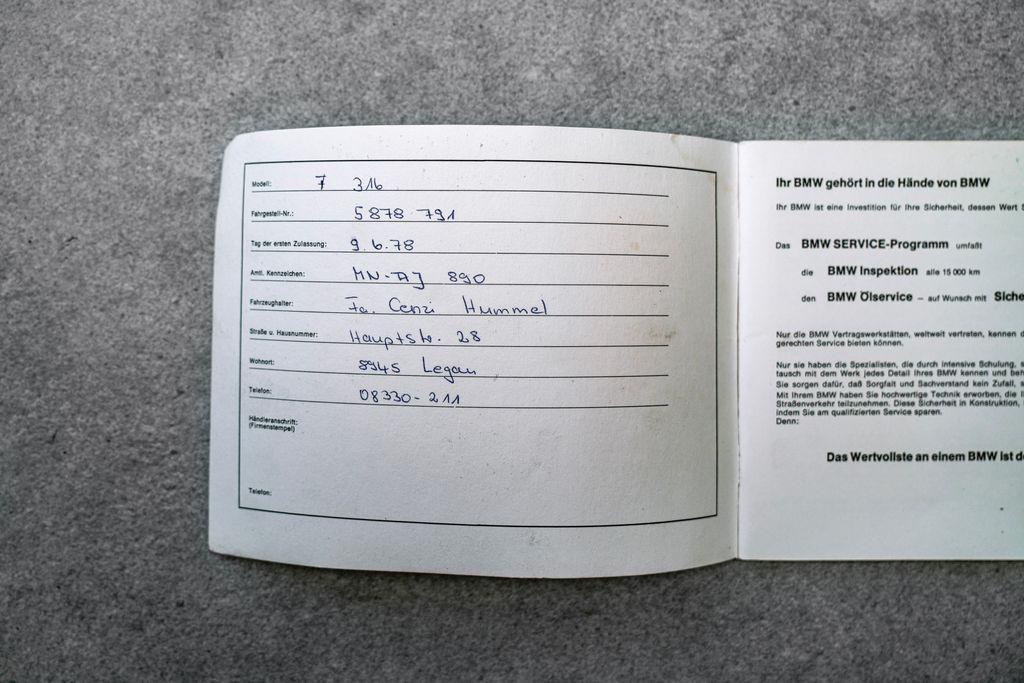 Modell: 7 316
Fahrgestell-Nr.: 5878 791
Tag der ersten Zulassung: 9.6.78
Amtl. Kennzeichen: MN-AJ 890
Fahrzeughalter: Fa. Cenzi Hummel
Straße u. Hausnummer: Hauptstr. 28
Wohnort: 8945 Legau
Telefon: 08330-211
Händleranschrift:
(Firmenstempel)
Telefon:
Ihr BMW gehört in die Hände von BMW
Ihr BMW ist eine Investition für Ihre Sicherheit, dessen Wert S
Das BMW SERVICE-Programm umfaßt
die BMW Inspektion alle 15 000 km
den BMW Ölservice – auf Wunsch mit Siche
Nur die BMW Vertragswerkstätten, weltweit vertreten, kennen d
gerechten Service bieten können.
Nur sie haben die Spezialisten, die durch intensive Schulung, s
tausch mit dem Werk jedes Detail Ihres BMW kennen und beh
Sie sorgen dafür, daß Sorgfalt und Sachverstand kein Zufall, s
Mit Ihrem BMW haben Sie hochwertige Technik erworben, die I
Straßenverkehr teilzunehmen. Diese Sicherheit in Konstruktion,
indem Sie am qualifizierten Service sparen.
Denn:
Das Wertvollste an einem BMW ist de